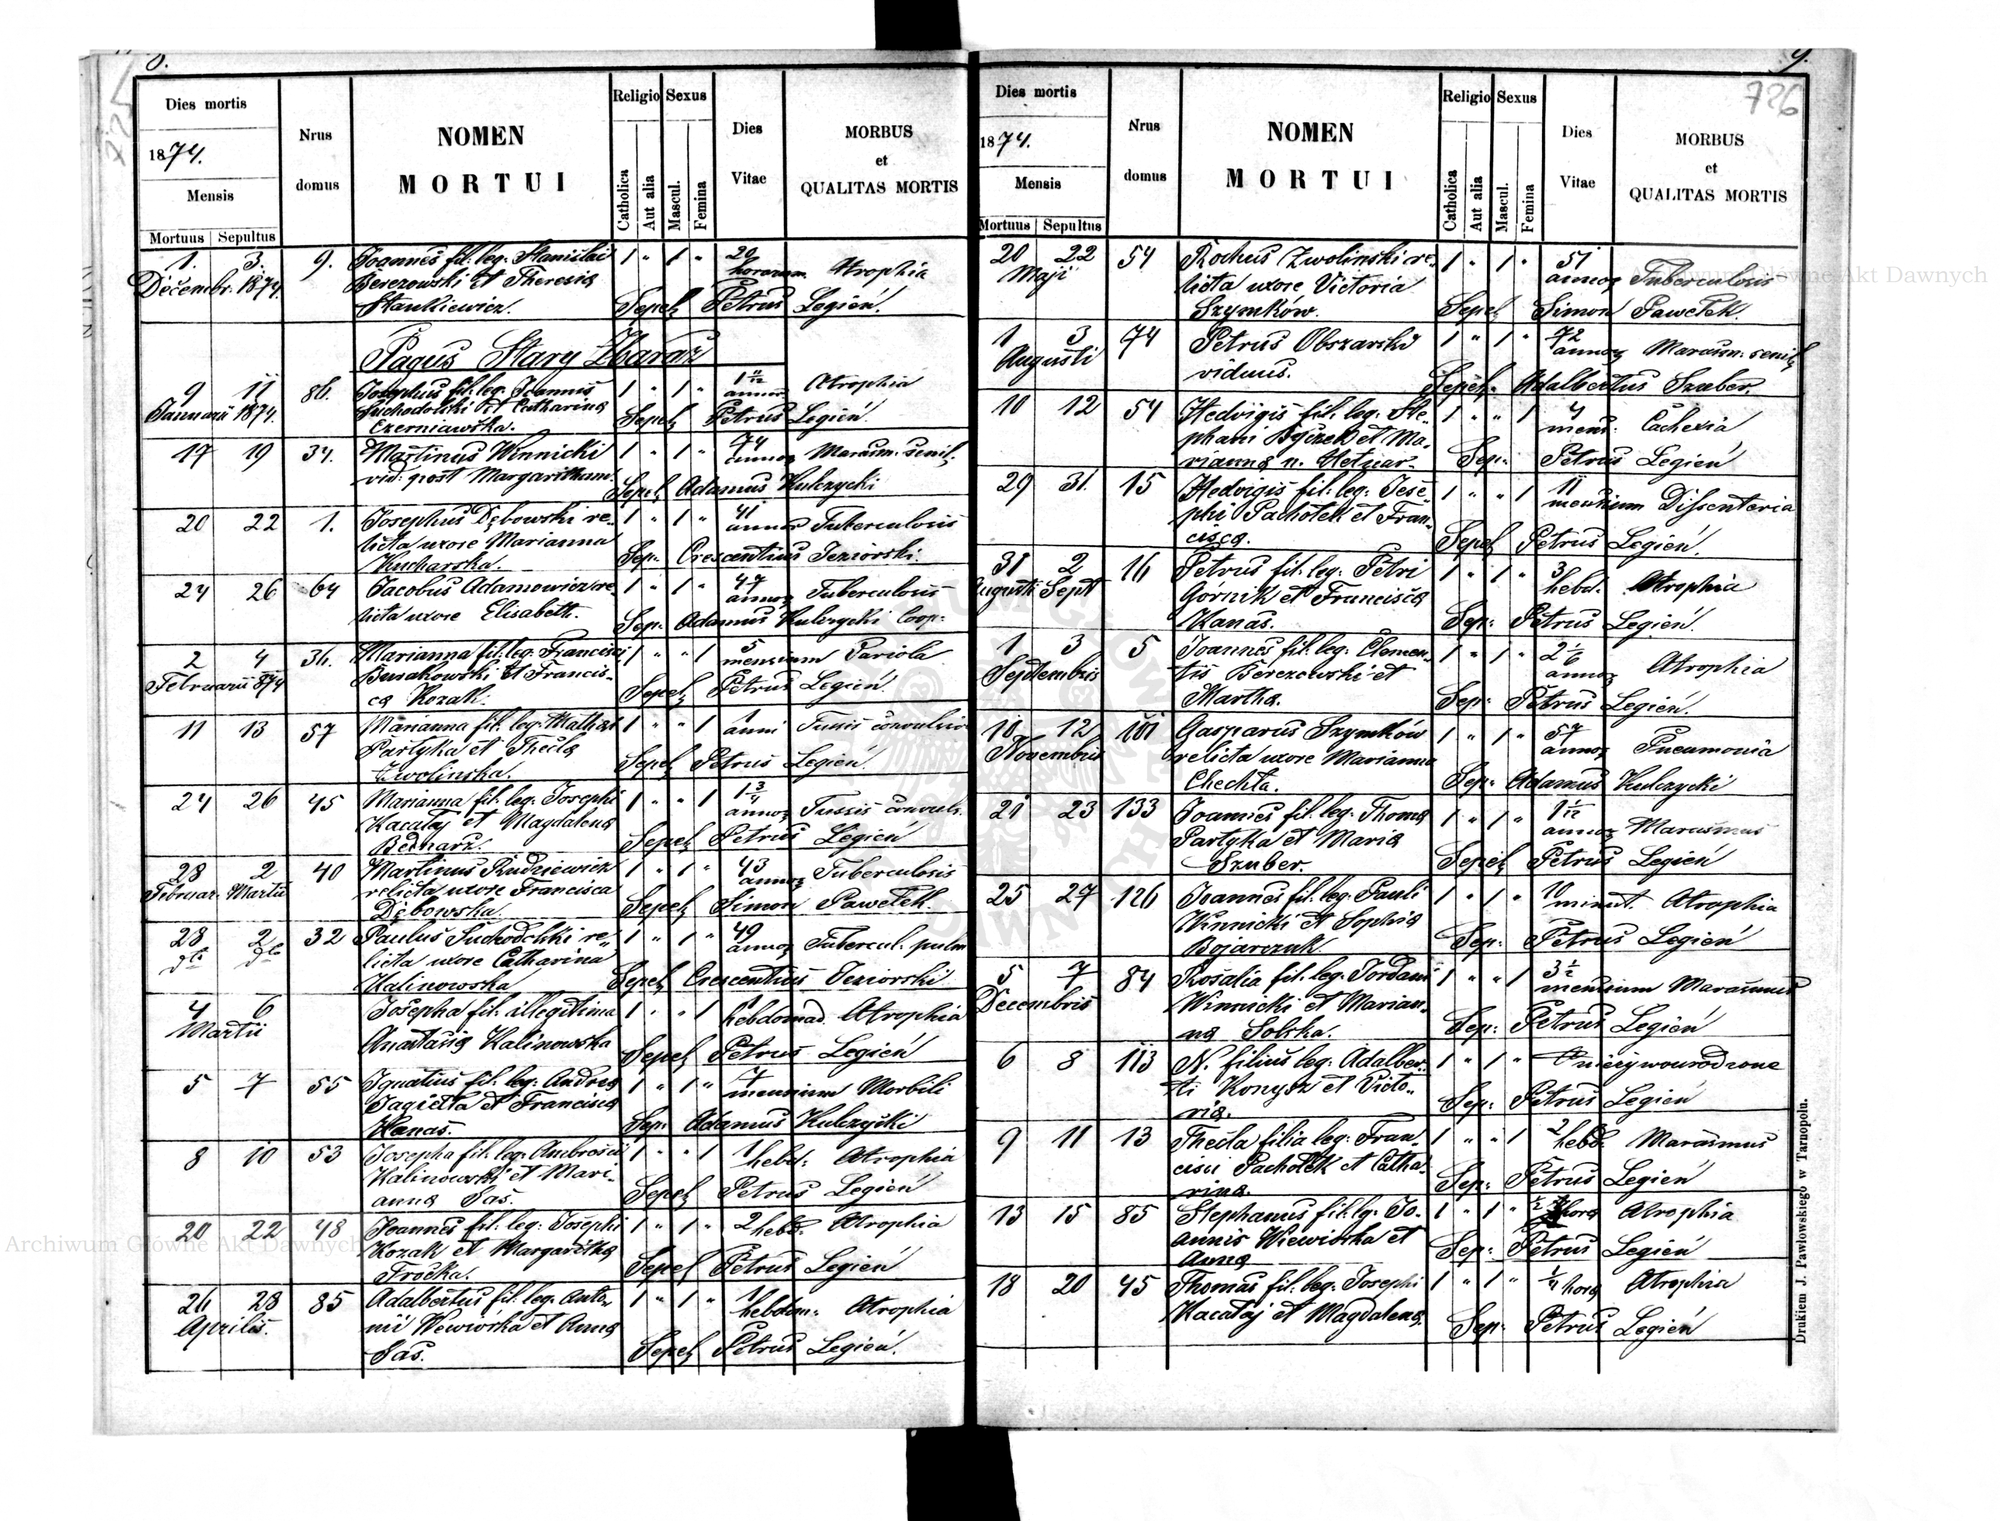 8.
Dies mortis
1874.
Mensis
Mortuus Sepultus
Nrus domus
NOMEN
MORTUI
Religio Sexus
Catholica
Aut alia
Mascul.
Femina
Dies Vitae
MORBUS
et
QUALITAS MORTIS
1. 3. 9. Joannes fil: leg: Stanislai 1 " 1 " 20
Decembr: 1874. Berezowski et Theresia horarum Atrophia
Stankiewicz. Sepel Petrus Legień.
Pagus Stary Zbaraż
9 11 86. Josephus fil: leg: Joannis 1 " 1 " 1 11/12 Atrophia
Januarii 1874. Suchodolski et Catharina
Czerniawska. Sepel Petrus Legień
17 19 34. Martinus Winnicki 1 " 1 " 74 annor Marasm: senil:
vid: post Margaritham. Sepel Adamus Kulczycki
20 22 1. Josephus Dębowski re- 1 " 1 " 41
licta uxore Marianna annor Tuberculosis
Kucharska. Sep: Crescentius Jeziorski.
24 26 64 Jacobus Adamowicz re- 1 " 1 " 47 annor Tuberculosis
licta uxore Elisabeth. Sep: Adamus Kulczycki coop:
2 4 36. Marianna fil: leg: Francisci 1 " " 1 5
Februarii 874 Busakowski et Francis- mensium Variola
ca Kozak. Sepel Petrus Legień
11 13 57 Marianna fil: leg: Mathaei 1 " " 1 1
Partyka et Thecla anni Tussis convulsiv
Zwolinska. Sepel Petrus Legień.
24 26 45 Marianna fil: leg: Josephi 1 " " 1 1 3/4
Kacałaj et Magdalena annor Tussis convuls:
Bednarz. Sepel Petrus Legień
28 2 40 Martinus Rudziewicz 1 " 1 " 43
Februar. Martii relicta uxore Francisca annor Tuberculosis
Dębowska. Sepel Simon Pawełek.
28 2 32 Paulus Suchodolski re- 1 " 1 " 49
dto dto licta uxore Catharina annor Tubercul. pulm
Kalinowska Sepel Crescentius Jeziorski
4 6 Josepha fil: illegitima 1 " " 1 1
Martii Anastasia Kalinowska hebdomad. Atrophia
Sepel Petrus Legień
5 7 55 Ignatius fil: leg: Andrea 1 " 1 " 7
Jagiełła et Francisca mensium Morbili
Kanas. Sep: Adamus Kulczycki
8 10 53 Josepha fil: leg: Ambrosii 1 " " 1 1
Kalinowski et Mari- hebd: Atrophia
anna Sas. Sepel Petrus Legień
20 22 48 Joannes fil: leg: Josephi 1 " 1 " 2 hebd. Atrophia
Kozak et Margaritha
Froćka. Sepel Petrus Legień
26 28 85 Adalbertus fil: leg: Anto- 1 " 1 " 1
Aprilis. nii Wewiórka et Anna hebdom: Atrophia
Sas. Sepel Petrus Legień.
9.
726
Dies mortis
1874.
Mensis
Mortuus Sepultus
Nrus domus
NOMEN
MORTUI
Religio Sexus
Catholica
Aut alia
Mascul.
Femina
Dies Vitae
MORBUS
et
QUALITAS MORTIS
20 22 54 Rochus Zwolinski re- 1 " 1 " 51
Maji licta uxore Victoria annor Tuberculosis
Szymków. Sepel Simon Pawełek.
1 3 74 Petrus Obszarski 1 " 1 " 72
Augusti viduus. annor Marasm: senil
Sepel: Adalbertus Szuber.
10 12 54 Hedvigis fil: leg: Ste- 1 " " 1
phani Byczek et Ma- mens: Cachexia
rianna n. Hetnar- Sep: Petrus Legień
29 31. 15 Hedvigis fil: leg: Jose- 1 " " 1 11
phi Pachołek et Fran- mensium Dissenteria
cisca. Sepel Petrus Legień.
31 2 16 Petrus fil: leg: Petri 1 " 1 " 3
Augusti Sept Górnik et Francisca hebd. Atrophia
Kanas. Sep: Petrus Legień.
1 3 5 Joannes fil: leg: Clemen- 1 " 1 " 2 1/6
Septembris tis Berezowski et annor Atrophia
Martha. Sep: Petrus Legień.
10 12 101 Gasparus Szymków 1 " 1 " 57
Novembris relicta uxore Marianna annor Pneumonia
Chechta. Sep: Adamus Kulczycki
21 23 133 Joannes fil: leg: Thoma 1 " 1 " 1 1/12
Partyka et Maria annor Marasmus
Szuber. Sepel Petrus Legień
25 27 126 Joannes fil: leg: Pauli 1 " 1 " 10
Winnicki et Sophia minut. Atrophia
Bojarczuk Sep: Petrus Legień
5 7 84 Rosalia fil: leg: Jordani 1 " " 1 3 1/2
Decembris Winnicki et Marian- mensium Marasmus
na Solska. Sep: Petrus Legień
6 8 113 N. filius leg: Adalber- 1 " 1 " nieżywourodzone
ti Konysz et Victo-
ria. Sep: Petrus Legień
9 11 13 Thecla filia leg: Fran- 1 " " 1 2 hebd. Marasmus
cisci Pachołek et Catha-
rina. Sep: Petrus Legień
13 15 85 Stephanus fil: leg: Jo- 1 " 1 " 1/2 hora Atrophia
annis Wiewiórka et
Anna Sep: Petrus Legień
18 20 45 Thomas fil: leg: Josephi 1 " 1 " 1/4 hora Atrophia
Kacałaj et Magdalena. Sep: Petrus Legień
Drukiem J. Pawłowskiego w Tarnopolu.
Archiwum Główne Akt Dawnych
Archiwum Główne Akt Dawnych